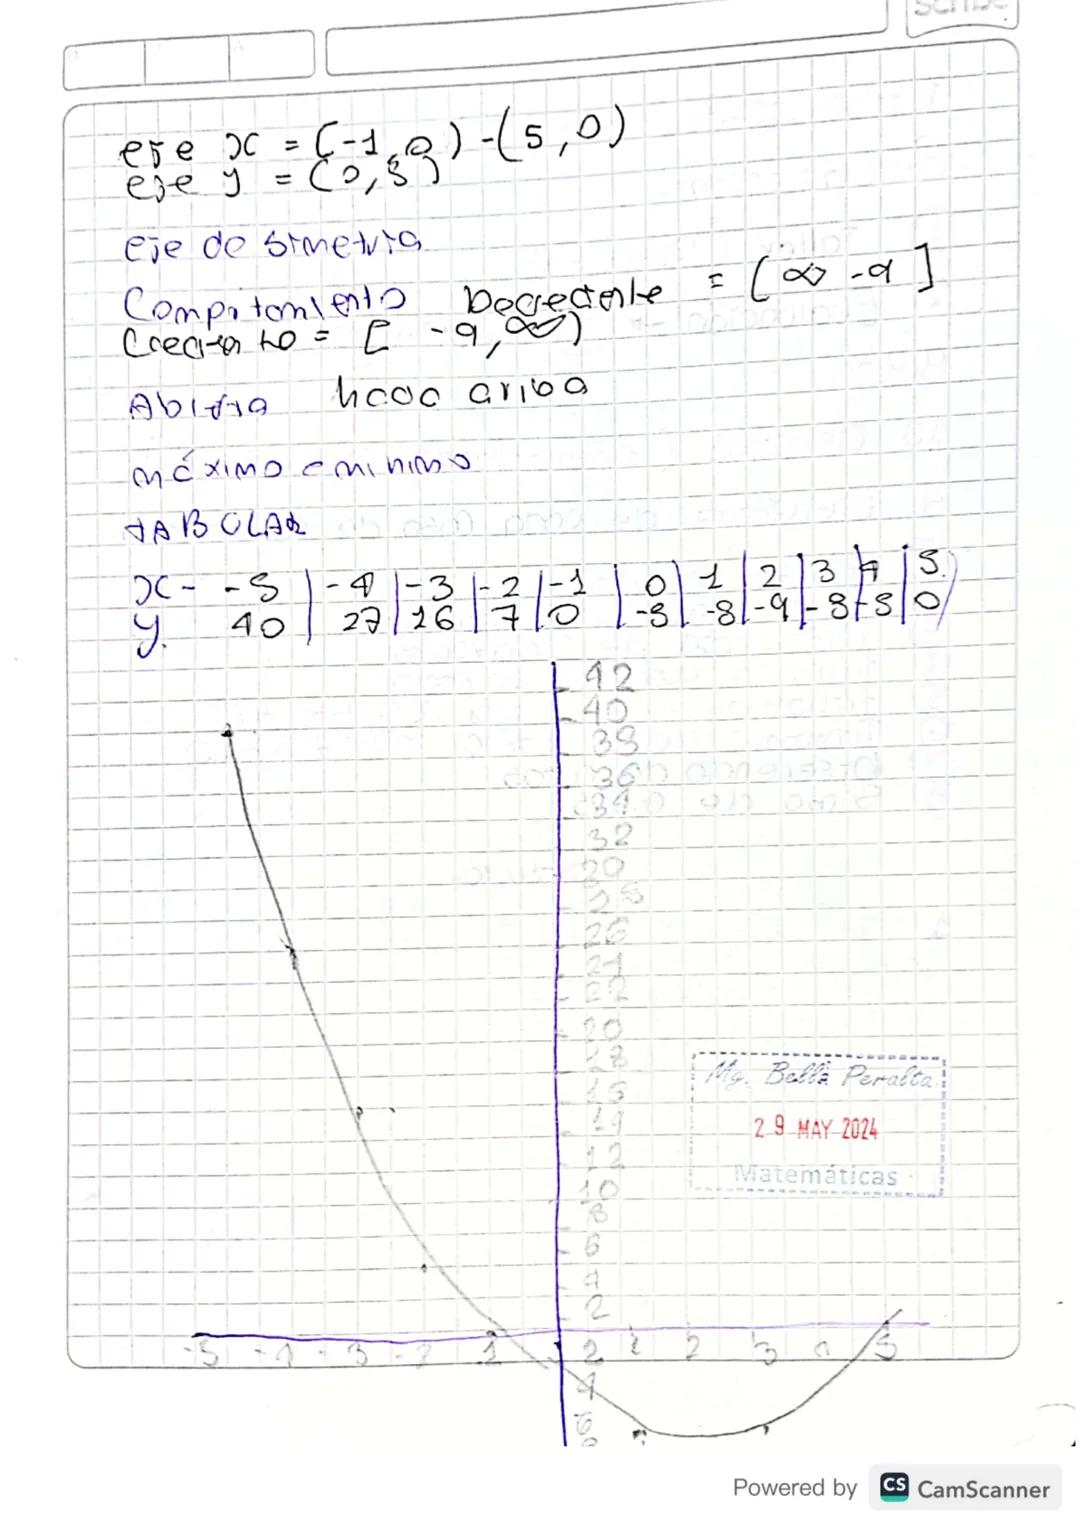 eje x = (-1,0) - (5,0)
eje y = (0,5)
eje de simetria
Decrecente = (∞ -9]
= [ -9,∞)
Abierta hacia ariba
máximo e minimo
TABULAR
x - -5 | -4 | -3 | -2 | -1 | 0 | 1 | 2 | 3 | 4 | 5
y. 40 | 27 | 16 | 7 | 0 | -5 | -8 | -9 | -8 | -5 | 0
42
40
38
36
34
32
30
28
26
24
22
20
18
16
Mg. Bella Peralta
14
29 MAY 2024
12
Matemáticas
10
8
6
4
2
-5 -4 -3 -2 -1 2 1 2 3 4 5
4
6
Powered by CS CamScanner